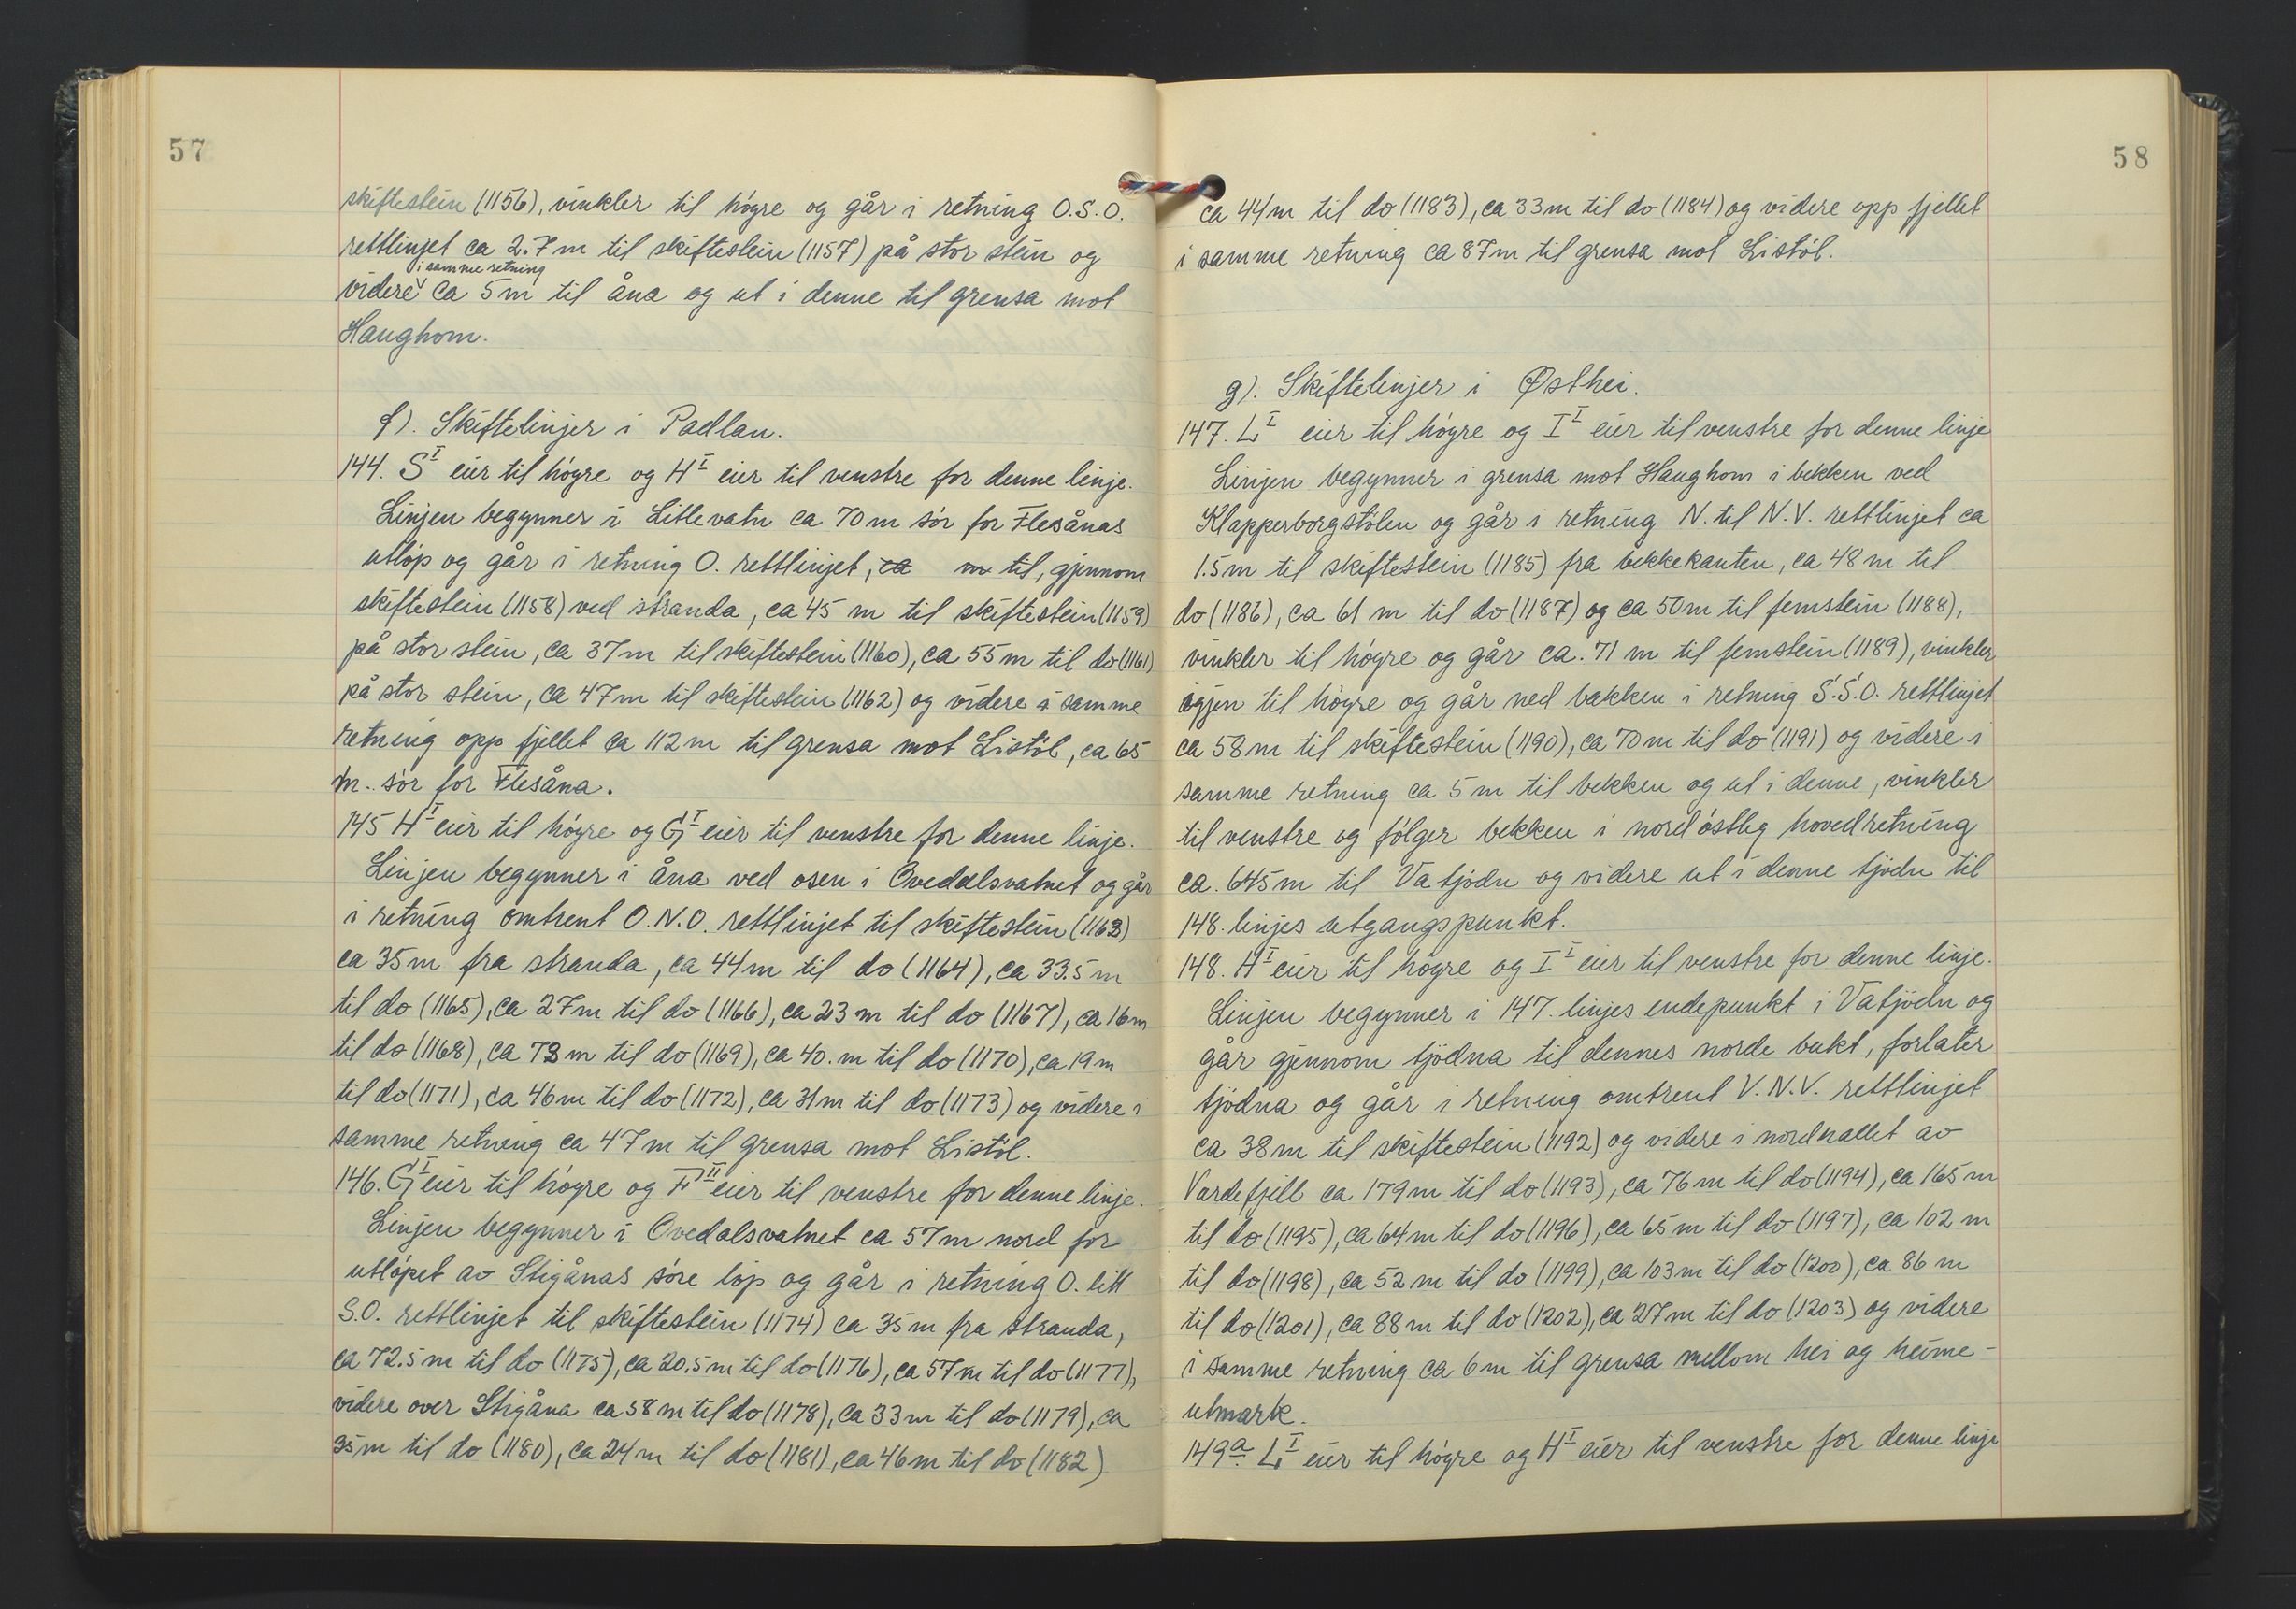 57
skiftestein (1156), vinkler til högre og går i retning O.S.O.
rettlinjet ca 2.7m til skiftestein (1157) på stor stein og
i samme retning
videre ca 5m til åna og ut i denne til grensa mot
Haughom.
f). Skiftelinjer i Padlan.
144. S I eier til högre og H I eier til venstre for denne linje.
Linjen begynner i Litlevatn ca 70m sör for Flesånas
utlöp og går i retning O. rettlinjet, ca m til, gjennom
skiftestein (1158) ved stranda, ca 45 m til skiftestein (1159)
på stor stein, ca 37m til skiftestein (1160), ca 55m til do (1161)
på stor stein, ca 47m til skiftestein (1162) og videre i samme
retning opp fjellet ca 112m til grensa mot Listöl, ca 65
m. sör for Flesåna.
145 H I eier til högre og G I eier til venstre for denne linje.
Linjen begynner i åna ved osen i Ovedalsvatnet og går
i retning omtrent O.N.O. rettlinjet til skiftestein (1163)
ca 35m fra stranda, ca 44m til do (1164), ca 33.5m
til do (1165), ca 27m til do (1166), ca 23 m til do (1167), ca 16m
til do (1168), ca 73m til do (1169), ca 40. m til do (1170), ca 19m
til do (1171), ca 46m til do (1172), ca 31m til do (1173) og videre i
samme retning ca 47m til grensa mot Listöl.
146. G I eier til högre og F II eier til venstre for denne linje.
Linjen begynner i Ovedalsvatnet ca 57m nord for
utlöpet av Stigånas söre löp og går i retning O. litt
S.O. rettlinjet til skiftestein (1174) ca 35m fra stranda,
ca 72.5m til do (1175), ca 20.5m til do (1176), ca 57m til do (1177),
videre over Stigåna ca 58m til do (1178), ca 33m til do (1179), ca
35m til do (1180), ca 24m til do (1181), ca 46m til do (1182)
58
ca 44m til do (1183), ca 33m til do (1184) og videre opp fjellet
i samme retning ca 87m til grensa mot Listöl.
g). Skiftelinjer i Østhei.
147. L I eier til högre og I I eier til venstre for denne linje
Linjen begynner i grensa mot Haughom i bekken ved
Klapperborgstölen og går i retning N. til N.V. rettlinjet ca
1.5m til skiftestein (1185) fra bekkekanten, ca 48m til
do (1186), ca 61 m til do (1187) og ca 50m til femstein (1188),
vinkler til högre og går ca. 71 m til femstein (1189), vinkler
igjen til högre og går ned bakken i retning S.S.O. rettlinjet
ca 58m til skiftestein (1190), ca 70m til do (1191) og videre i
samme retning ca 5m til bekken og ut i denne, vinkler
til venstre og fölger bekken i nordöstleg hovedretning
ca. 645m til Vatjödn og videre ut i denne tjödn til
148. linjes utgangspunkt.
148. H I eier til högre og I I eier til venstre for denne linje.
Linjen begynner i 147. linjes endepunkt i Vatjödn og
går gjennom tjödna til dennes norde bukt, forlater
tjödna og går i retning omtrent V.N.V. rettlinjet
ca 38m til skiftestein (1192) og videre i nordhallet av
Vardefjell ca 179m til do (1193), ca 76m til do (1194), ca 165m
til do (1195), ca 64m til do (1196), ca 65m til do (1197), ca 102 m
til do (1198), ca 52 m til do (1199), ca 103m til do (1200), ca 86 m
til do (1201), ca 88m til do (1202), ca 27m til do (1203) og videre
i samme retning ca 6m til grensa mellom hei og heime-
utmark.
149a. L I eier til högre og H I eier til venstre for denne linje